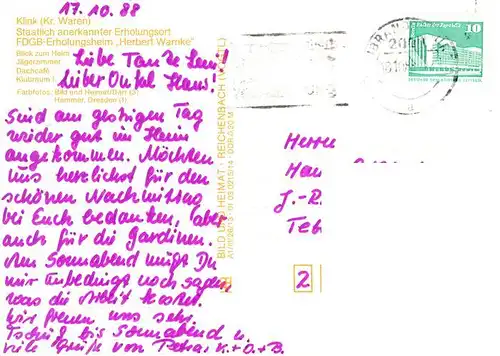 17.10.88
Klink (Kr. Waren)
Staatlich anerkannter Erholungsort
FDGB-Erholungsheim „Herbert Warnke"
Blick zum Heim
Jägerzimmer
Dachcafé
Klubraum
Farbfotos: Bild und Heimat/Dan (3)
Hammer, Dresden (1)
Liebe Tante Leni!
Lieber Onkel Hans!
Sind am gestrigen Tag
wieder gut in Heim
angekommen. Möchten
uns herzlichst für den
schönen Nachmittag
bei Euch bedanken, aber
auch für die Gardinen.
Am Sonnabend mußt Du
mir unbedingt noch sagen
was die Arbeit kostet.
Wir freuen uns sehr.
Tschüß bis Sonnabend u.
viele Grüße von Petra, K. + O. + B.
BILD UND HEIMAT · REICHENBACH (VOGTL)
Herrn
Han
J.-R.
Tet
2
10